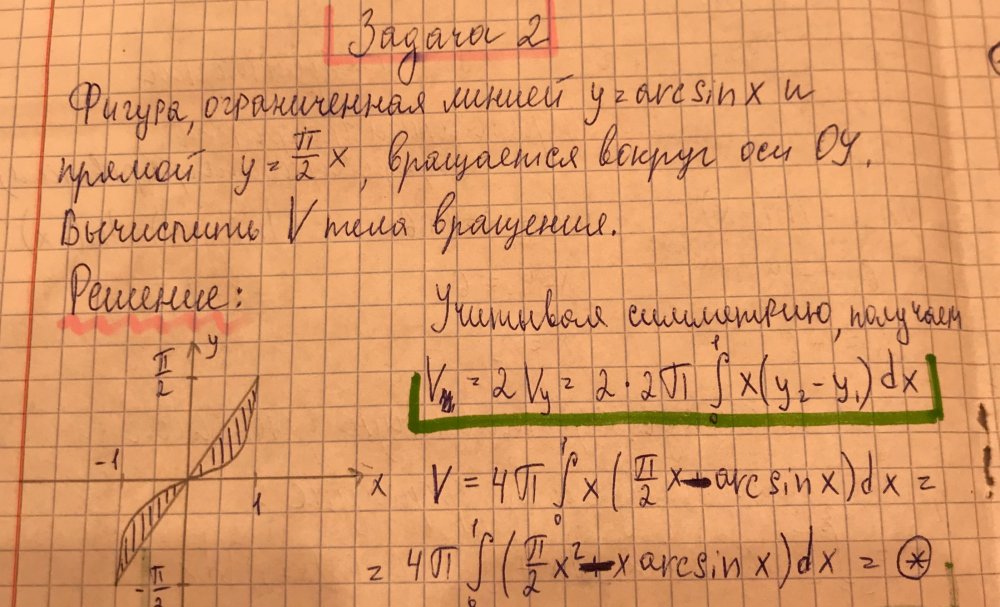 Задача 2
Фигура, ограниченная линией y = arcsin x и
прямой y = π/2 x, вращается вокруг оси OY.
Вычислить V тела вращения.
Решение:
Учитывая симметрию, получаем
V = 2 V_y = 2 · 2π ∫₀¹ x(y₂ - y₁) dx
V = 4π ∫₀¹ x (π/2 x - arcsin x) dx =
= 4π ∫₀¹ (π/2 x² - x arcsin x) dx = ⊛
y
π/2
-1
1
x
-π/2